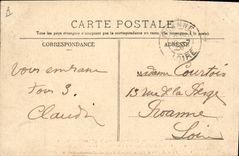 CARTE POSTALE
Tous les pays étrangers n'acceptent pas la correspondance au recto
CORRESPONDANCE
ADRESSE
LOIRE
vous embrasse
Tous 3.
Claudia
Madame Courtois
13 rue de la
Roanne
Loire